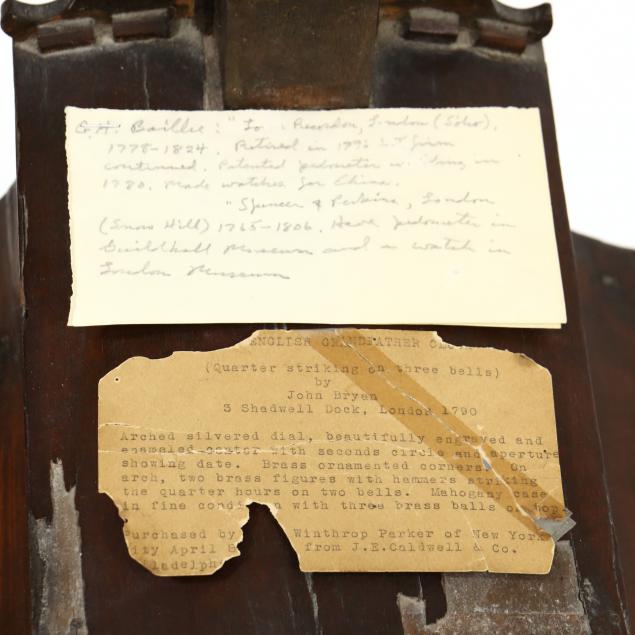 G.H. Baillie: "Lo : Recordon, London (Soho),
1778-1824. Retired in 1796 but firm
continued. Patented pedometer winding in
1780. Made watches for China.
"Spencer & Perkins, London
(Snow Hill) 1765-1806. Have pedometer in
Guildhall Museum and a watch in
London Museum
ENGLISH GRANDFATHER
(Quarter striking on three bells)
by
John Bryan
3 Shadwell Dock, London 1790
Arched silvered dial, beautifully engraved and
enameled center with seconds circle and aperture
showing date. Brass ornamented corners. On
arch, two brass figures with hammers striking
the quarter hours on two bells. Mahogany case
in fine condi n with three brass balls on top
urchased by Winthrop Parker of New York
ity April 8 from J.E.Caldwell & Co.
iladelph